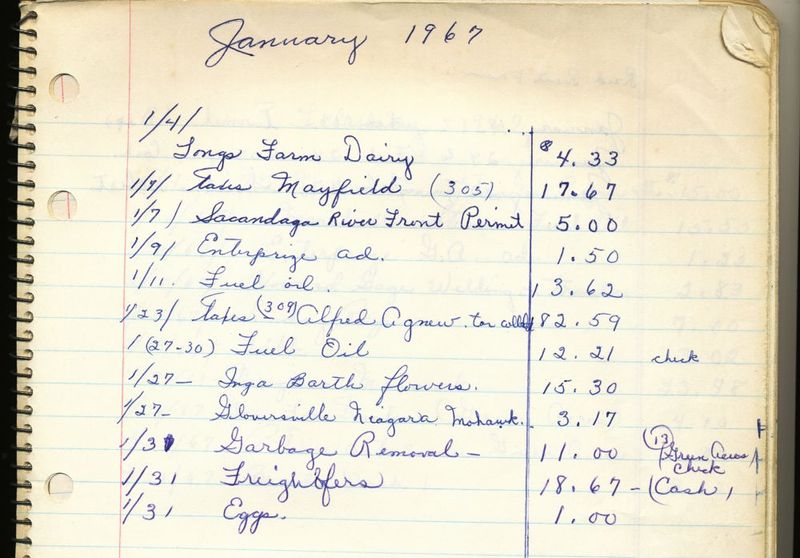 January 1967
1/4/
Tongs Farm Dairy $4.33
1/9/ Taxes Mayfield (305) 17.67
1/7/ Sacandaga River Front Permit 5.00
1/9/ Enterprize ad. 1.50
1/11. Fuel oil. 13.62
1/23/ Taxes (309) Alfred Agnew. tax 182.59
1(27-30) Fuel Oil 12.21 check
1/27- Inga Barth flowers. 15.30
1/27- Gloversville Niagara Mohawk. 3.17
1/31 Garbage Removal - 11.00 (13) Green Acres check
1/31 Freighofers 18.67 - (Cash)
1/31 Eggs. 1.00